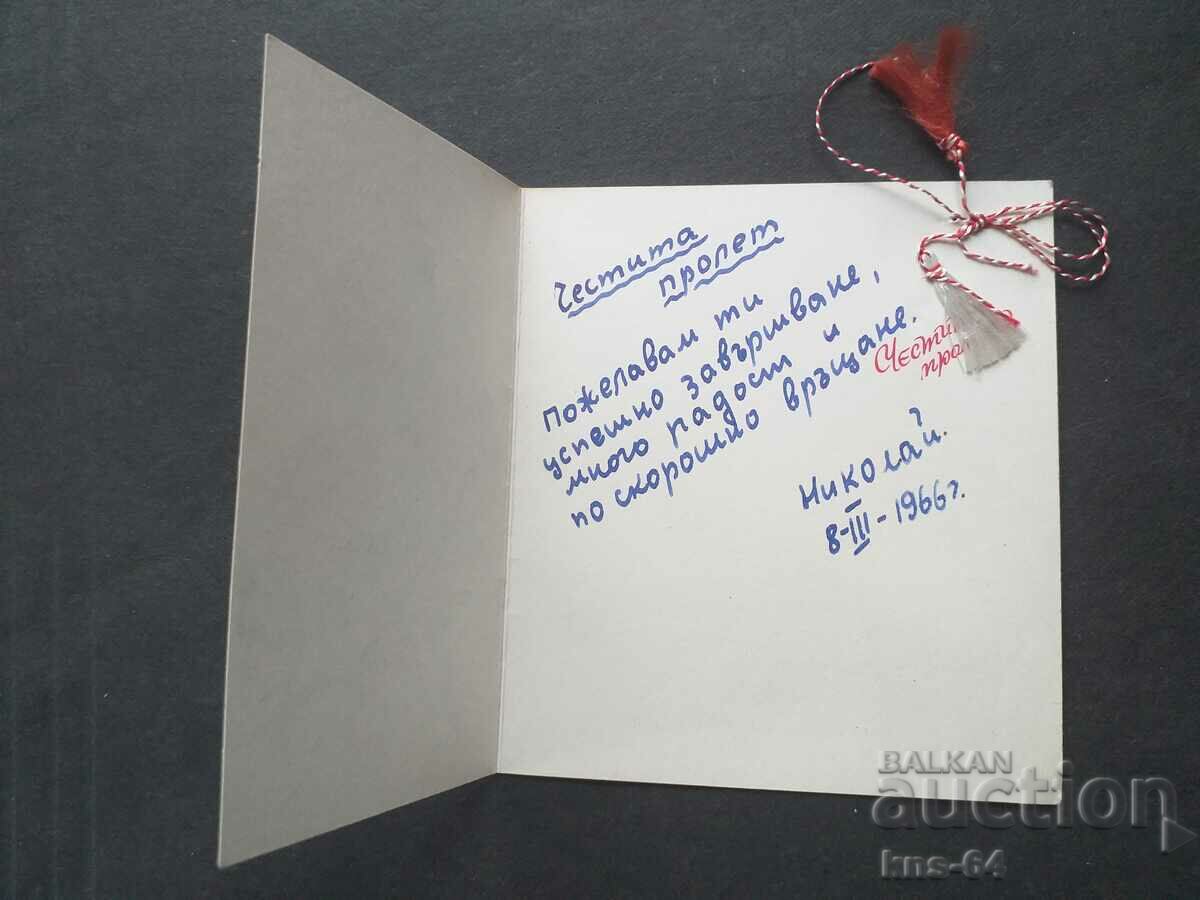 Честита
пролет
Пожелавам ти
успешно завършване,
много радост и
по скорошно връщане.
Николай.
8-III-1966 г.
BALKAN
auction
kns-64